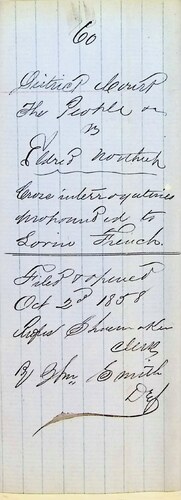 60
District Court
The People &c
vs
Eldred Northup
Cross interrogatories
propounded to
Loren French.
Filed & opened
Oct 2d 1858
Rufus Shoemaker
Clerk
By Jno. Smith
Dep